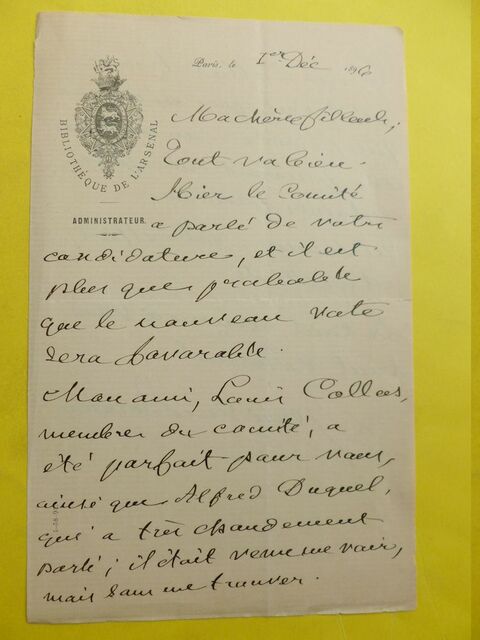 BIBLIOTHÈQUE DE L'ARSENAL
ADMINISTRATEUR
Paris, le 1er Déc 1896
Ma chère filleule,
Tout va bien.
Hier le Comité
a parlé de votre
candidature, et il est
plus que probable
que le nouveau vote
sera favorable.
Mon ami, Louis Collas,
membre du comité, a
été parfait pour vous,
ainsi que Alfred Duquet,
qui a très chaudement
parlé; il était venu me voir,
mais sans me trouver.